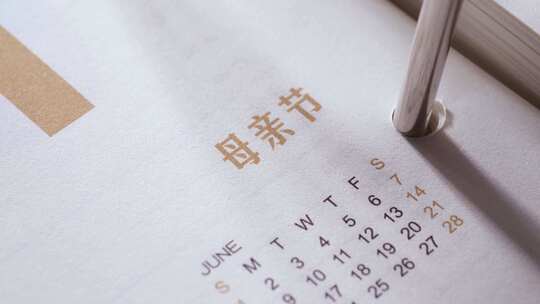 母亲节
JUNE
S M T W T F S
2 3 4 5 6 7
9 10 11 12 13 14
17 18 19 20 21
25 26 27 28